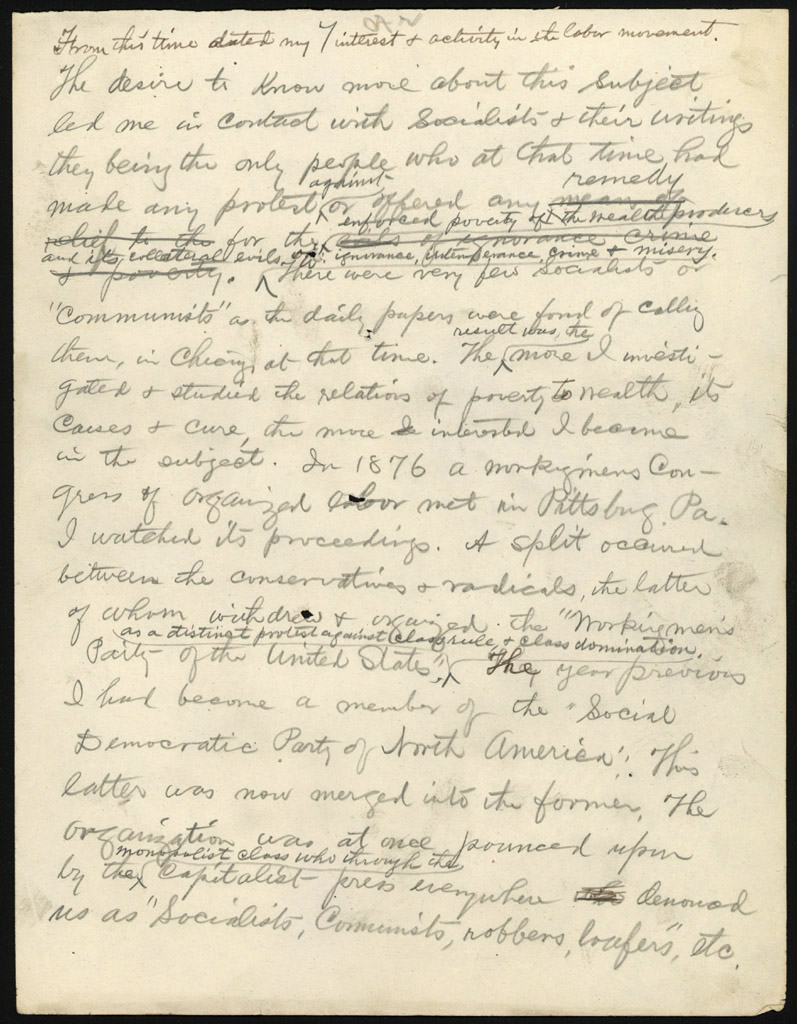 From this time dated my interest & activity in the labor movement.
The desire to know more about this subject
led me in contact with Socialists & their writings
they being the only people who at that time had
against remedy
made any protest or offered any means of
enforced poverty of the wealth producers
relief to the for the acts of ignorance crime
and its collateral evils, ignorance, intemperance, crime & misery.
& poverty. There were very few Socialists or
"Communists" as the daily papers were fond of callig
result was, the
them, in Chicag, at that time. The more I investi-
gated & studied the relations of poverty to wealth, its
Causes & cure, the more interested I became
in the subject. In 1876 a workigmens Con-
gress of organized labor met in Pittsbug Pa.
I watched its proceedings. A split occured
between the conservatives & radicals, the latter
of whom withdrew & organized the "Workingmen's
as a distinct protest against class rule & class domination.
Party of the United States", The year previous
I had become a member of the "Social
Democratic Party of North America". This
latter was now merged into the former. The
organization was at once pounced upon
monopolist class who through the
by the Capitalist press everywhere denouced
us as "Socialists, Comunists, robbers, loafers", etc.